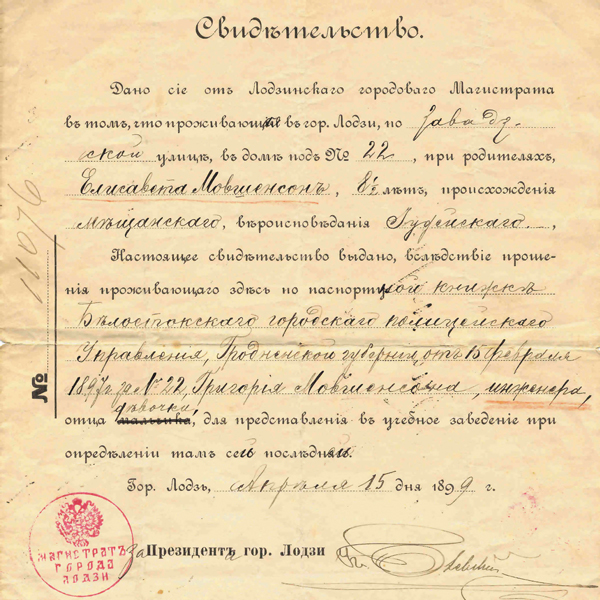 Свидѣтельство.
Дано сіе отъ Лодзинскаго городоваго Магистрата
въ томъ, что проживающая въ гор. Лодзи, по Завадз-
ской улицѣ, въ домѣ подъ № 22, при родителяхъ,
Елисавета Мовшенсонъ, 8½ лѣтъ, происхожденія
мѣщанскаго, вѣроисповѣданія Іудейскаго,
Настоящее свидѣтельство выдано, вслѣдствіе проше-
нія проживающаго здѣсь по паспортной книжкѣ
Бѣлостокскаго городскаго полицейскаго
Управленія, Гродненской губерніи, отъ 15 февраля
1897 г. за № 22, Григорія Мовшенсона, инженера,
дѣвочки,
отца мальчика, для представленія въ учебное заведеніе при
опредѣленіи тамъ сей послѣдней.
Гор. Лодзь, Апрѣля 15 дня 1899 г.
За Президента гор. Лодзи
МАГИСТРАТЪ
ГОРОДА
ЛОДЗИ
№ 11076